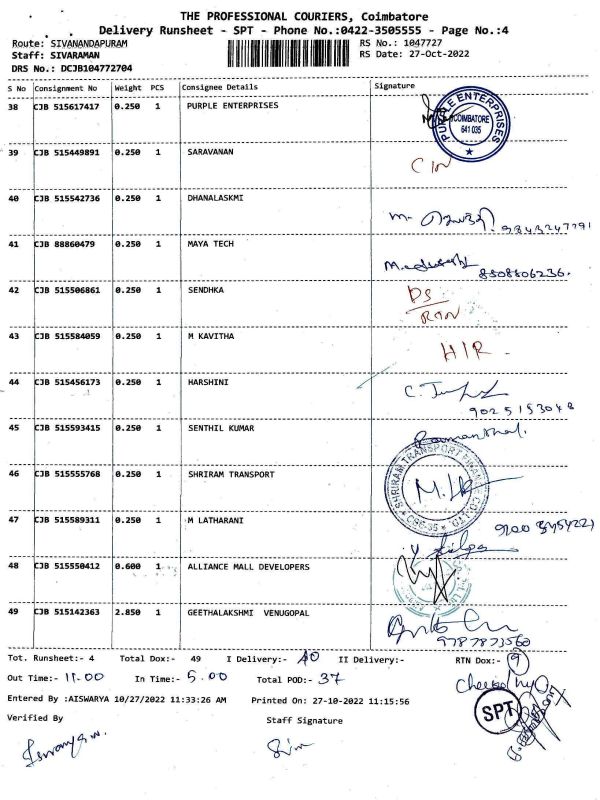 THE PROFESSIONAL COURIERS, Coimbatore
Delivery Runsheet - SPT - Phone No.:0422-3505555 - Page No.:4
Route: SIVANANDAPURAM RS No.: 1047727
Staff: SIVARAMAN RS Date: 27-Oct-2022
DRS No.: DCJB104772704
S No Consignment No Weight PCS Consignee Details Signature
38 CJB 515617417 0.250 1 PURPLE ENTERPRISES
PURPLE ENTERPRISES COIMBATORE 641 035
39 CJB 515449891 0.250 1 SARAVANAN
40 CJB 515542736 0.250 1 DHANALASKMI
41 CJB 88860479 0.250 1 MAYA TECH
8508806236.
42 CJB 515506861 0.250 1 SENDHKA DS
RTN
43 CJB 515584059 0.250 1 M KAVITHA
44 CJB 515456173 0.250 1 HARSHINI
9025153048
45 CJB 515593415 0.250 1 SENTHIL KUMAR
46 CJB 515555768 0.250 1 SHRIRAM TRANSPORT
SHRIRAM TRANSPORT FINANCE CO. LTD. CBE-35
47 CJB 515589311 0.250 1 M LATHARANI
48 CJB 515550412 0.600 1 ALLIANCE MALL DEVELOPERS
49 CJB 515142363 2.850 1 GEETHALAKSHMI VENUGOPAL
9787873560
Tot. Runsheet:- 4 Total Dox:- 49 I Delivery:- 40 II Delivery:- RTN Dox:- 9
Out Time:- 11.00 In Time:- 5.00 Total POD:- 37
Entered By :AISWARYA 10/27/2022 11:33:26 AM Printed On: 27-10-2022 11:15:56
SPT
Verified By Staff Signature